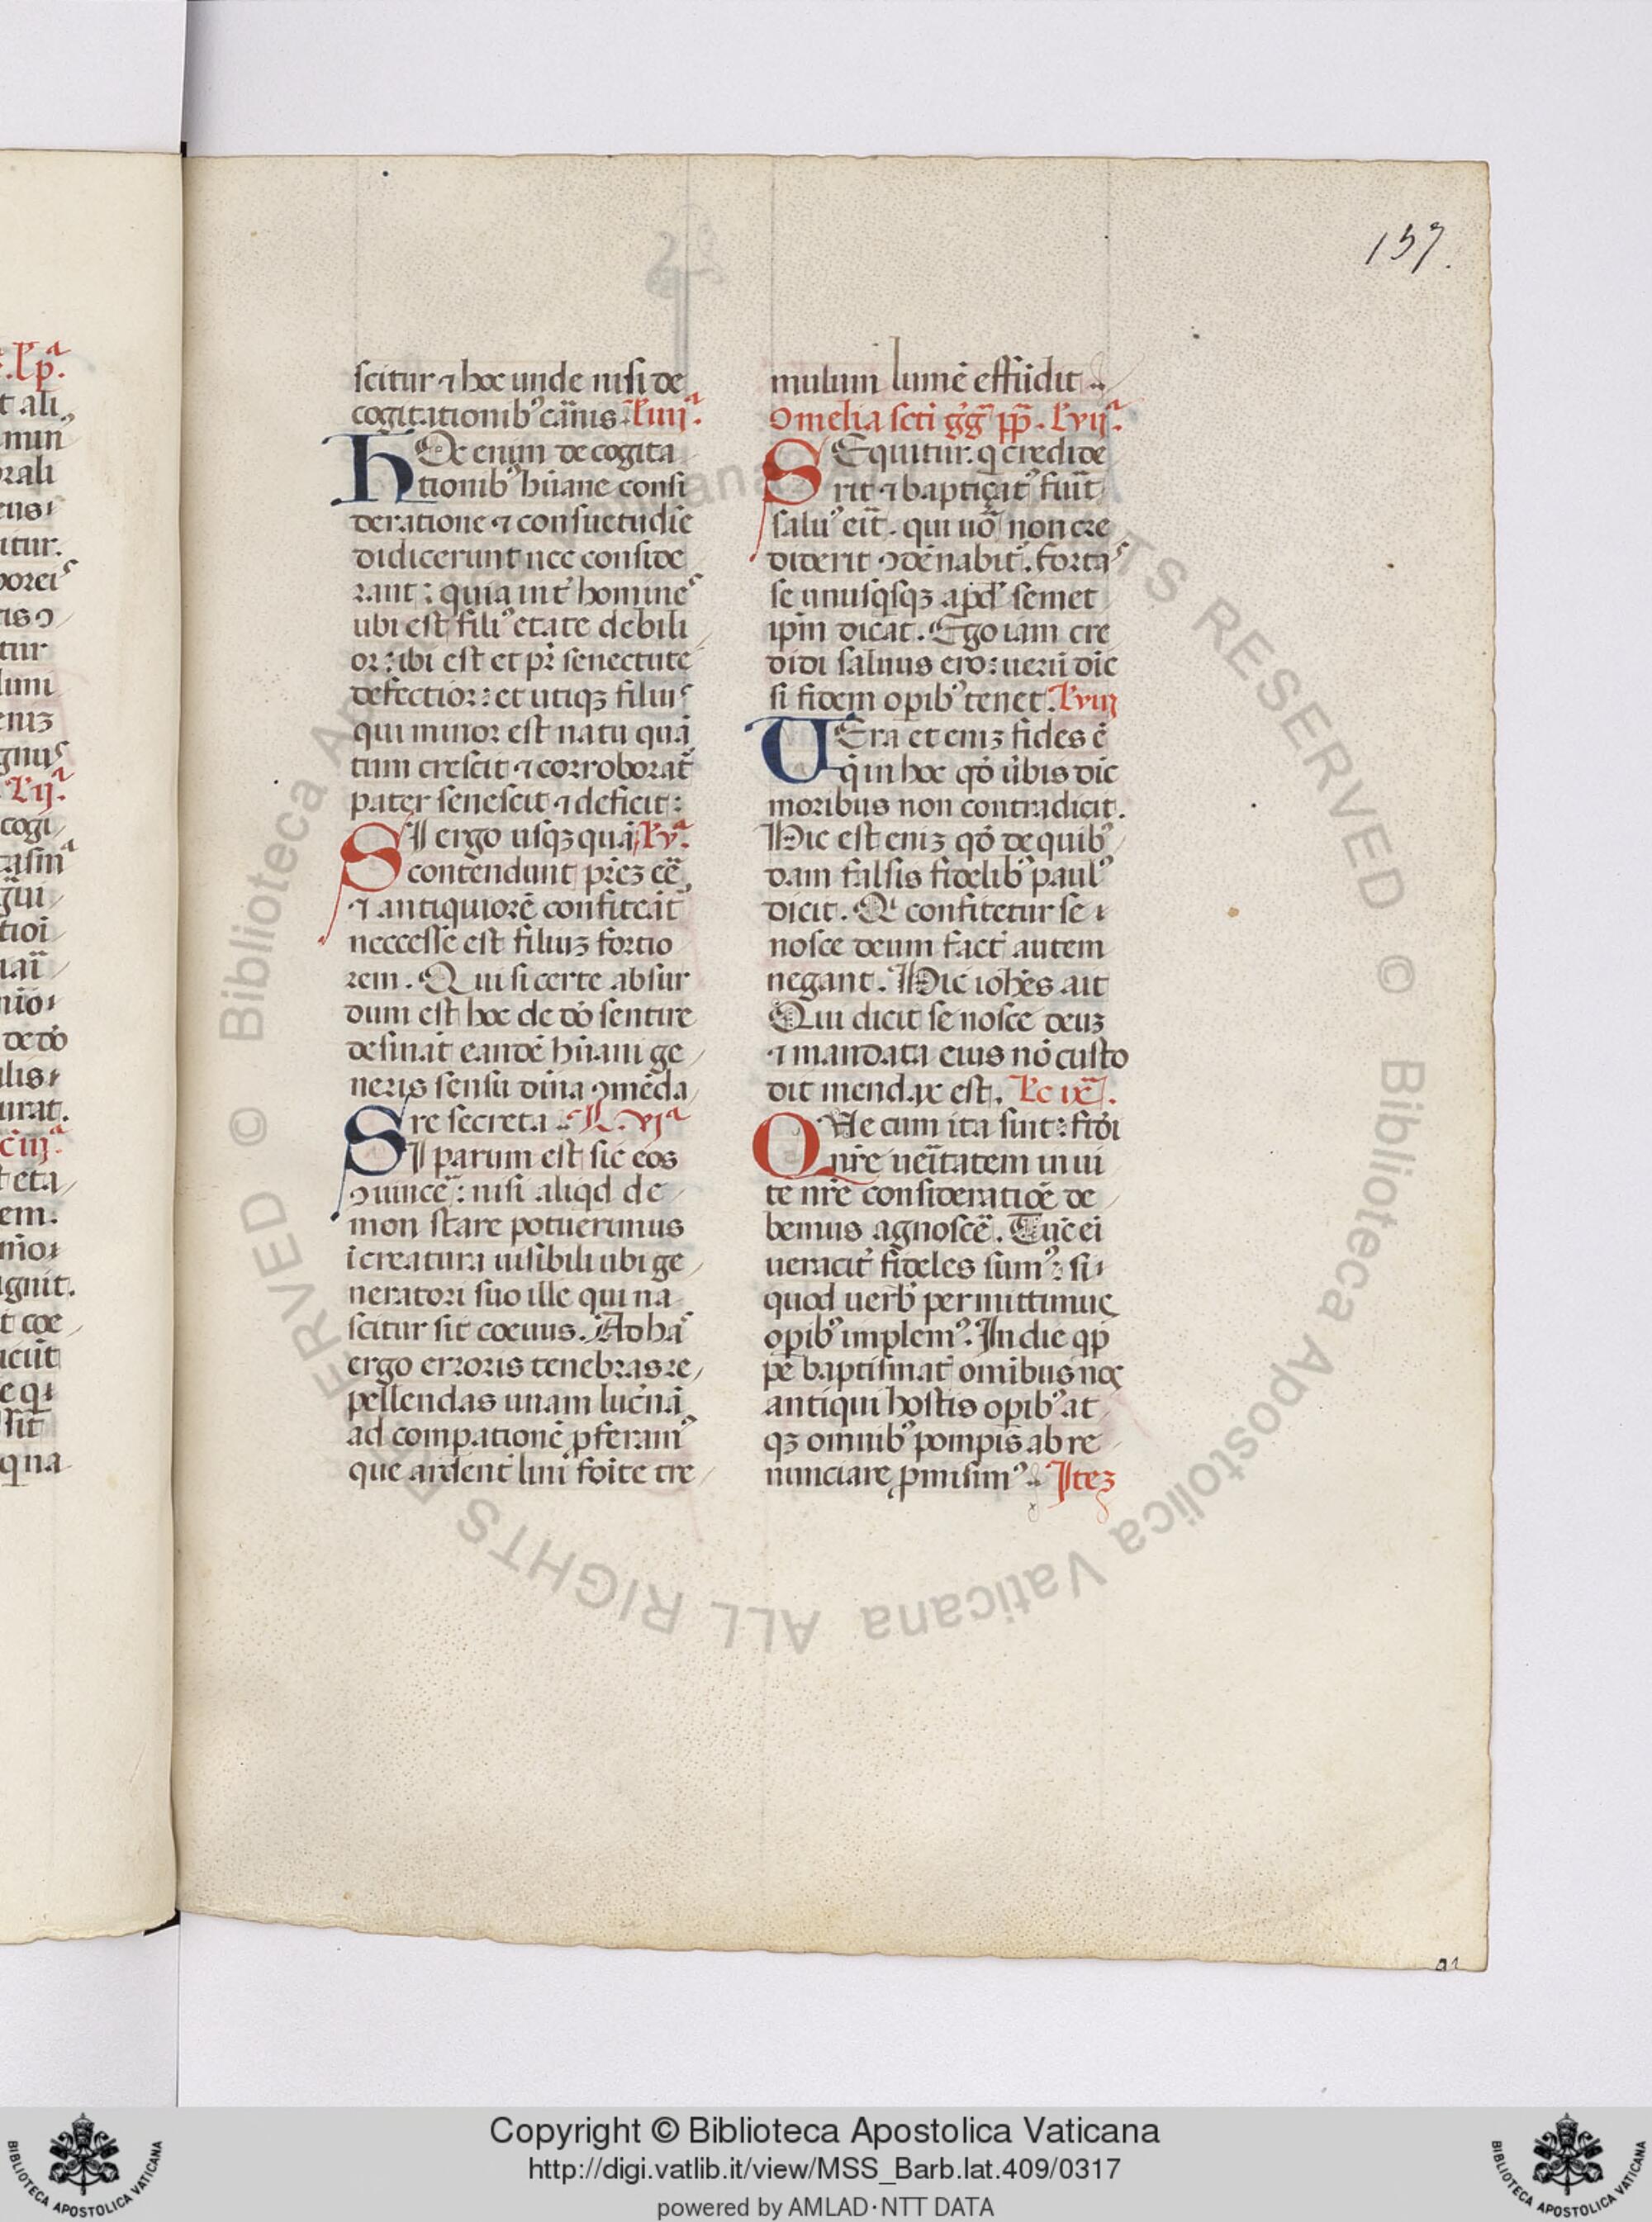 157.
scitur ⁊ hoc unde nisi de
cogitationibꝰ cãnis. L͞iiijᵃ.
HOc enim de cogita
tionibꝰ hũane consi
deratione ⁊ consuetudĩe
didicerunt nec conside
rant: quia int̉ homines
ubi est filiꝰ etate debili
or: ibi est et pr̃ senectute
defectior: et utiqꝫ filius
qui minor est natu quã
tum crescit ⁊ corroborat̃
pater senescit ⁊ deficit:
SI ergo usqꝫ quã L͞vᵃ.
contendunt pr̃eꝫ eẽ
⁊ antiquiorẽ confiteãt̃
neccesse est filiuꝫ fortio
rem. Qui si certe absur
dum est hoc de dõ sentire
desinãt eandẽ hũani ge
neris sensu diũa ꝯmẽda
re secreta. L. vjᵃ
SI parum est sic eos
ꝯuincẽ: nisi aliqd de
mon stare potuerimus
ĩ creatura uisibili ubi ge
neratori suo ille qui na
scitur sit coeuus. Ad has
ergo erroris tenebras re
pellendas unam lucẽnã
ad compationẽ ꝓferamꝰ
que ardent̃ lini foĩte tre
mulum lumẽ effudit
Omelia sc̃ti gg̃ pp̃. L͞vijᵃ.
SEquitur. q credide
rit ⁊ baptiçatꝰ fuĩt
saluꝰ eĩt. qui uõ non cre
diderit ꝯdẽnabit̃. Fortas
se unusqsqꝫ apd̃ semet
ipm̃ dicat. Ego iam cre
didi saluus ero: uerũ dic̃
si fidem opibꝰ tenet. L͞viij
UEra et eniꝫ fides ẽ
q̃ in hoc qõ ũbis dic̃
moribus non contradicit.
Hic est eniꝫ qõ de quibꝰ
dam falsis fidelibꝰ paulꝰ
dicit. Q̃ confitetur se
nosce deum fact̃ autem
negant. Hic ioh̃es ait
Qui dicit se nosce deuꝫ
⁊ mandata eius nõ custo
dit mendax est. L͞c ix͞ᵃ.
QVe cum ita sint: fidẽi
nr̃e ueĩtatem in ui
te nr̃e consideratiõe de
bemus agnoscẽ. Tũc ei
ueracit̃ fideles sumꝰ: si
quod uerb̃ permittimus
opibꝰ implemꝰ. In die qp
pe baptismat̃ omĩbus nos
antiqui hostis opibꝰ at
qꝫ omnibꝰ pompis ab re
nunciare ꝓmisimꝰ. Iteꝫ
Copyright © Biblioteca Apostolica Vaticana
http://digi.vatlib.it/view/MSS_Barb.lat.409/0317
powered by AMLAD·NTT DATA